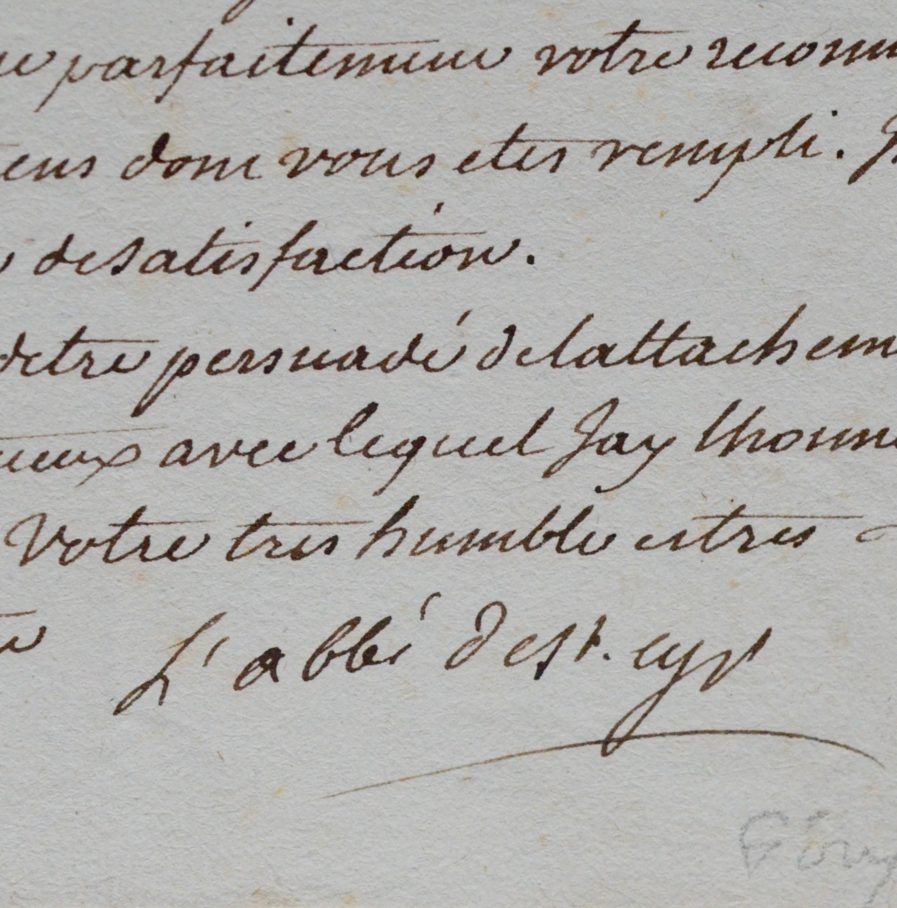 parfaitement votre reconn
tens dont vous etes rempli. J
desatisfaction.
detre persuadé delattachem
ueux avec lequel Jay lhonne
Votre tres humble et tres
L'abbé de st. cyr